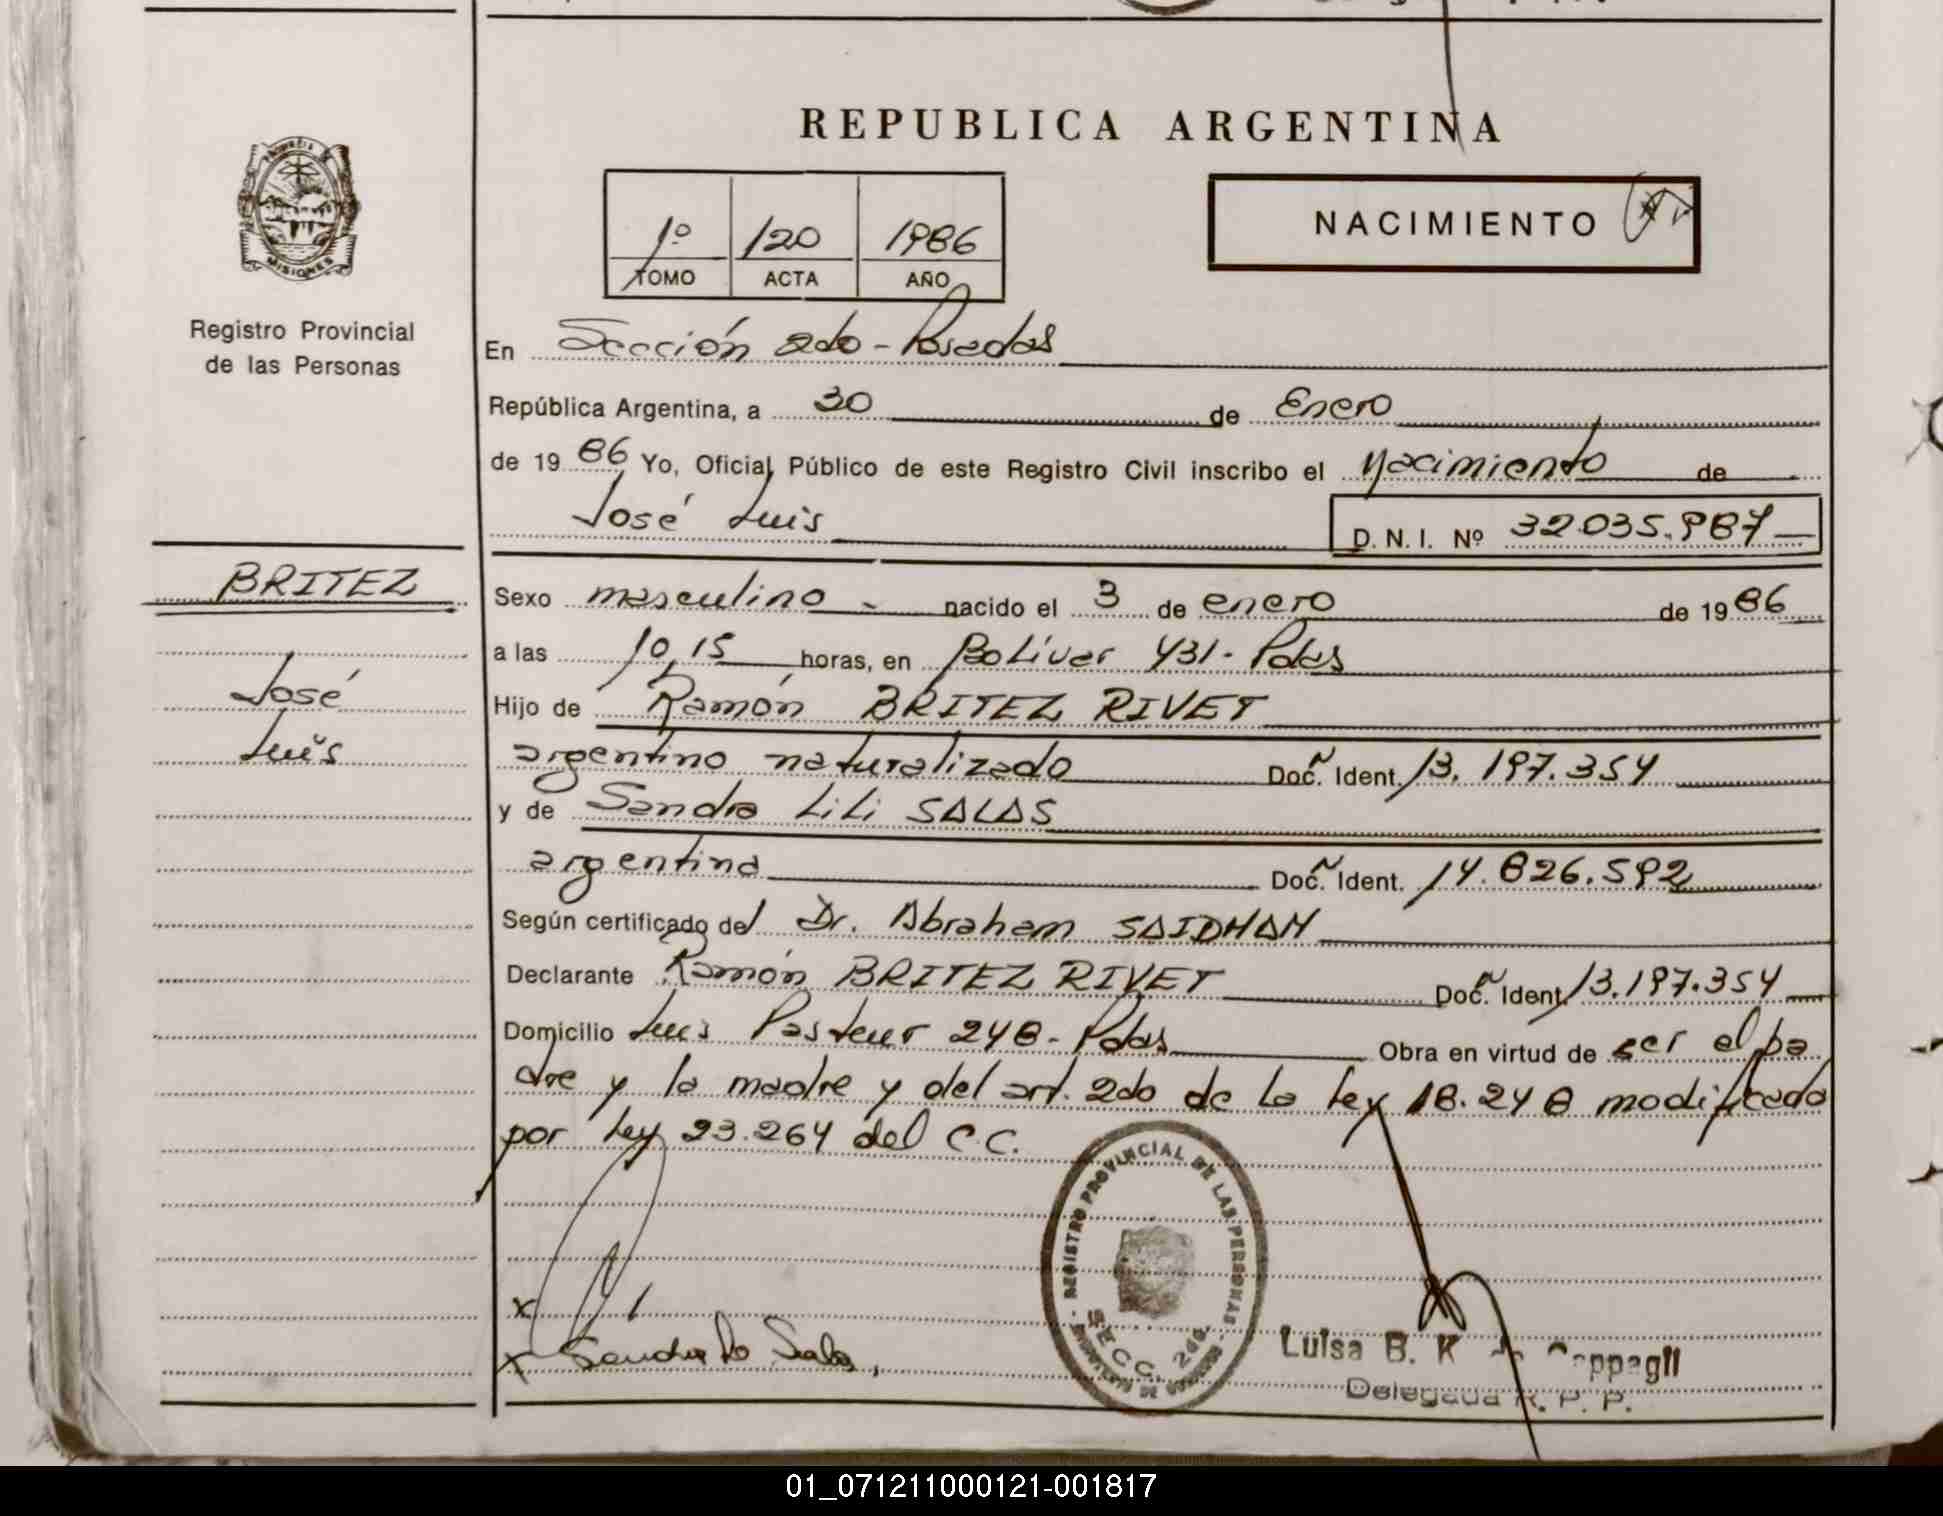 REPUBLICA ARGENTINA
PROVINCIA DE
MISIONES
Registro Provincial
de las Personas
1º 120 1986
TOMO ACTA AÑO
NACIMIENTO
En Sección 2do - Posadas
República Argentina, a 30 de Enero
de 1986 Yo, Oficial Público de este Registro Civil inscribo el Nacimiento de
José Luis D. N. I. Nº 32.035.987
BRITEZ
José
Luis
Sexo masculino nacido el 3 de enero de 1986
a las 10,15 horas, en Bolívar 431 - Pdas
Hijo de Ramón BRITEZ RIVET
argentino naturalizado Doc. Ident. 13.197.354
y de Sandra LiLi SALAS
argentina Doc. Ident. 14.826.592
Según certificado del Dr. Abraham
Declarante Ramón BRITEZ RIVET Doc. Ident. 13.197.354
Domicilio Luis Pasteur 248 - Pdas Obra en virtud de ser el pa
dre y la madre y del art. 2do de la Ley 18.248 modificada
por Ley 23.264 del C.C.
REGISTRO PROVINCIAL DE LAS PERSONAS
SECC. 2da.
x
x Sandra
Luisa B. K
Delegada R. P. P.
01_071211000121-001817